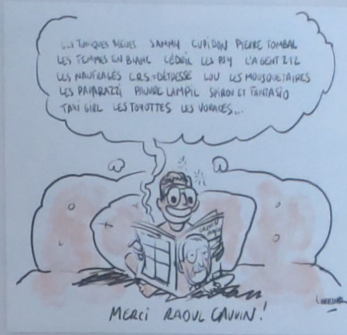 LES TUNIQUES BLEUES SAMMY CUPIDON PIERRE TOMBAL
LES FEMMES EN BLANC CÉDRIC LES PSY L'AGENT 212
LES NAUFRAGÉS C.R.S=DÉTRESSE LOU LES MOUSQUETAIRES
LES PAPARAZZI PAUVRE LAMPIL SPIROU ET FANTASIO
TAXI GIRL LES TOYOTTES LES VORACES...
MERCI RAOUL CAUVIN!